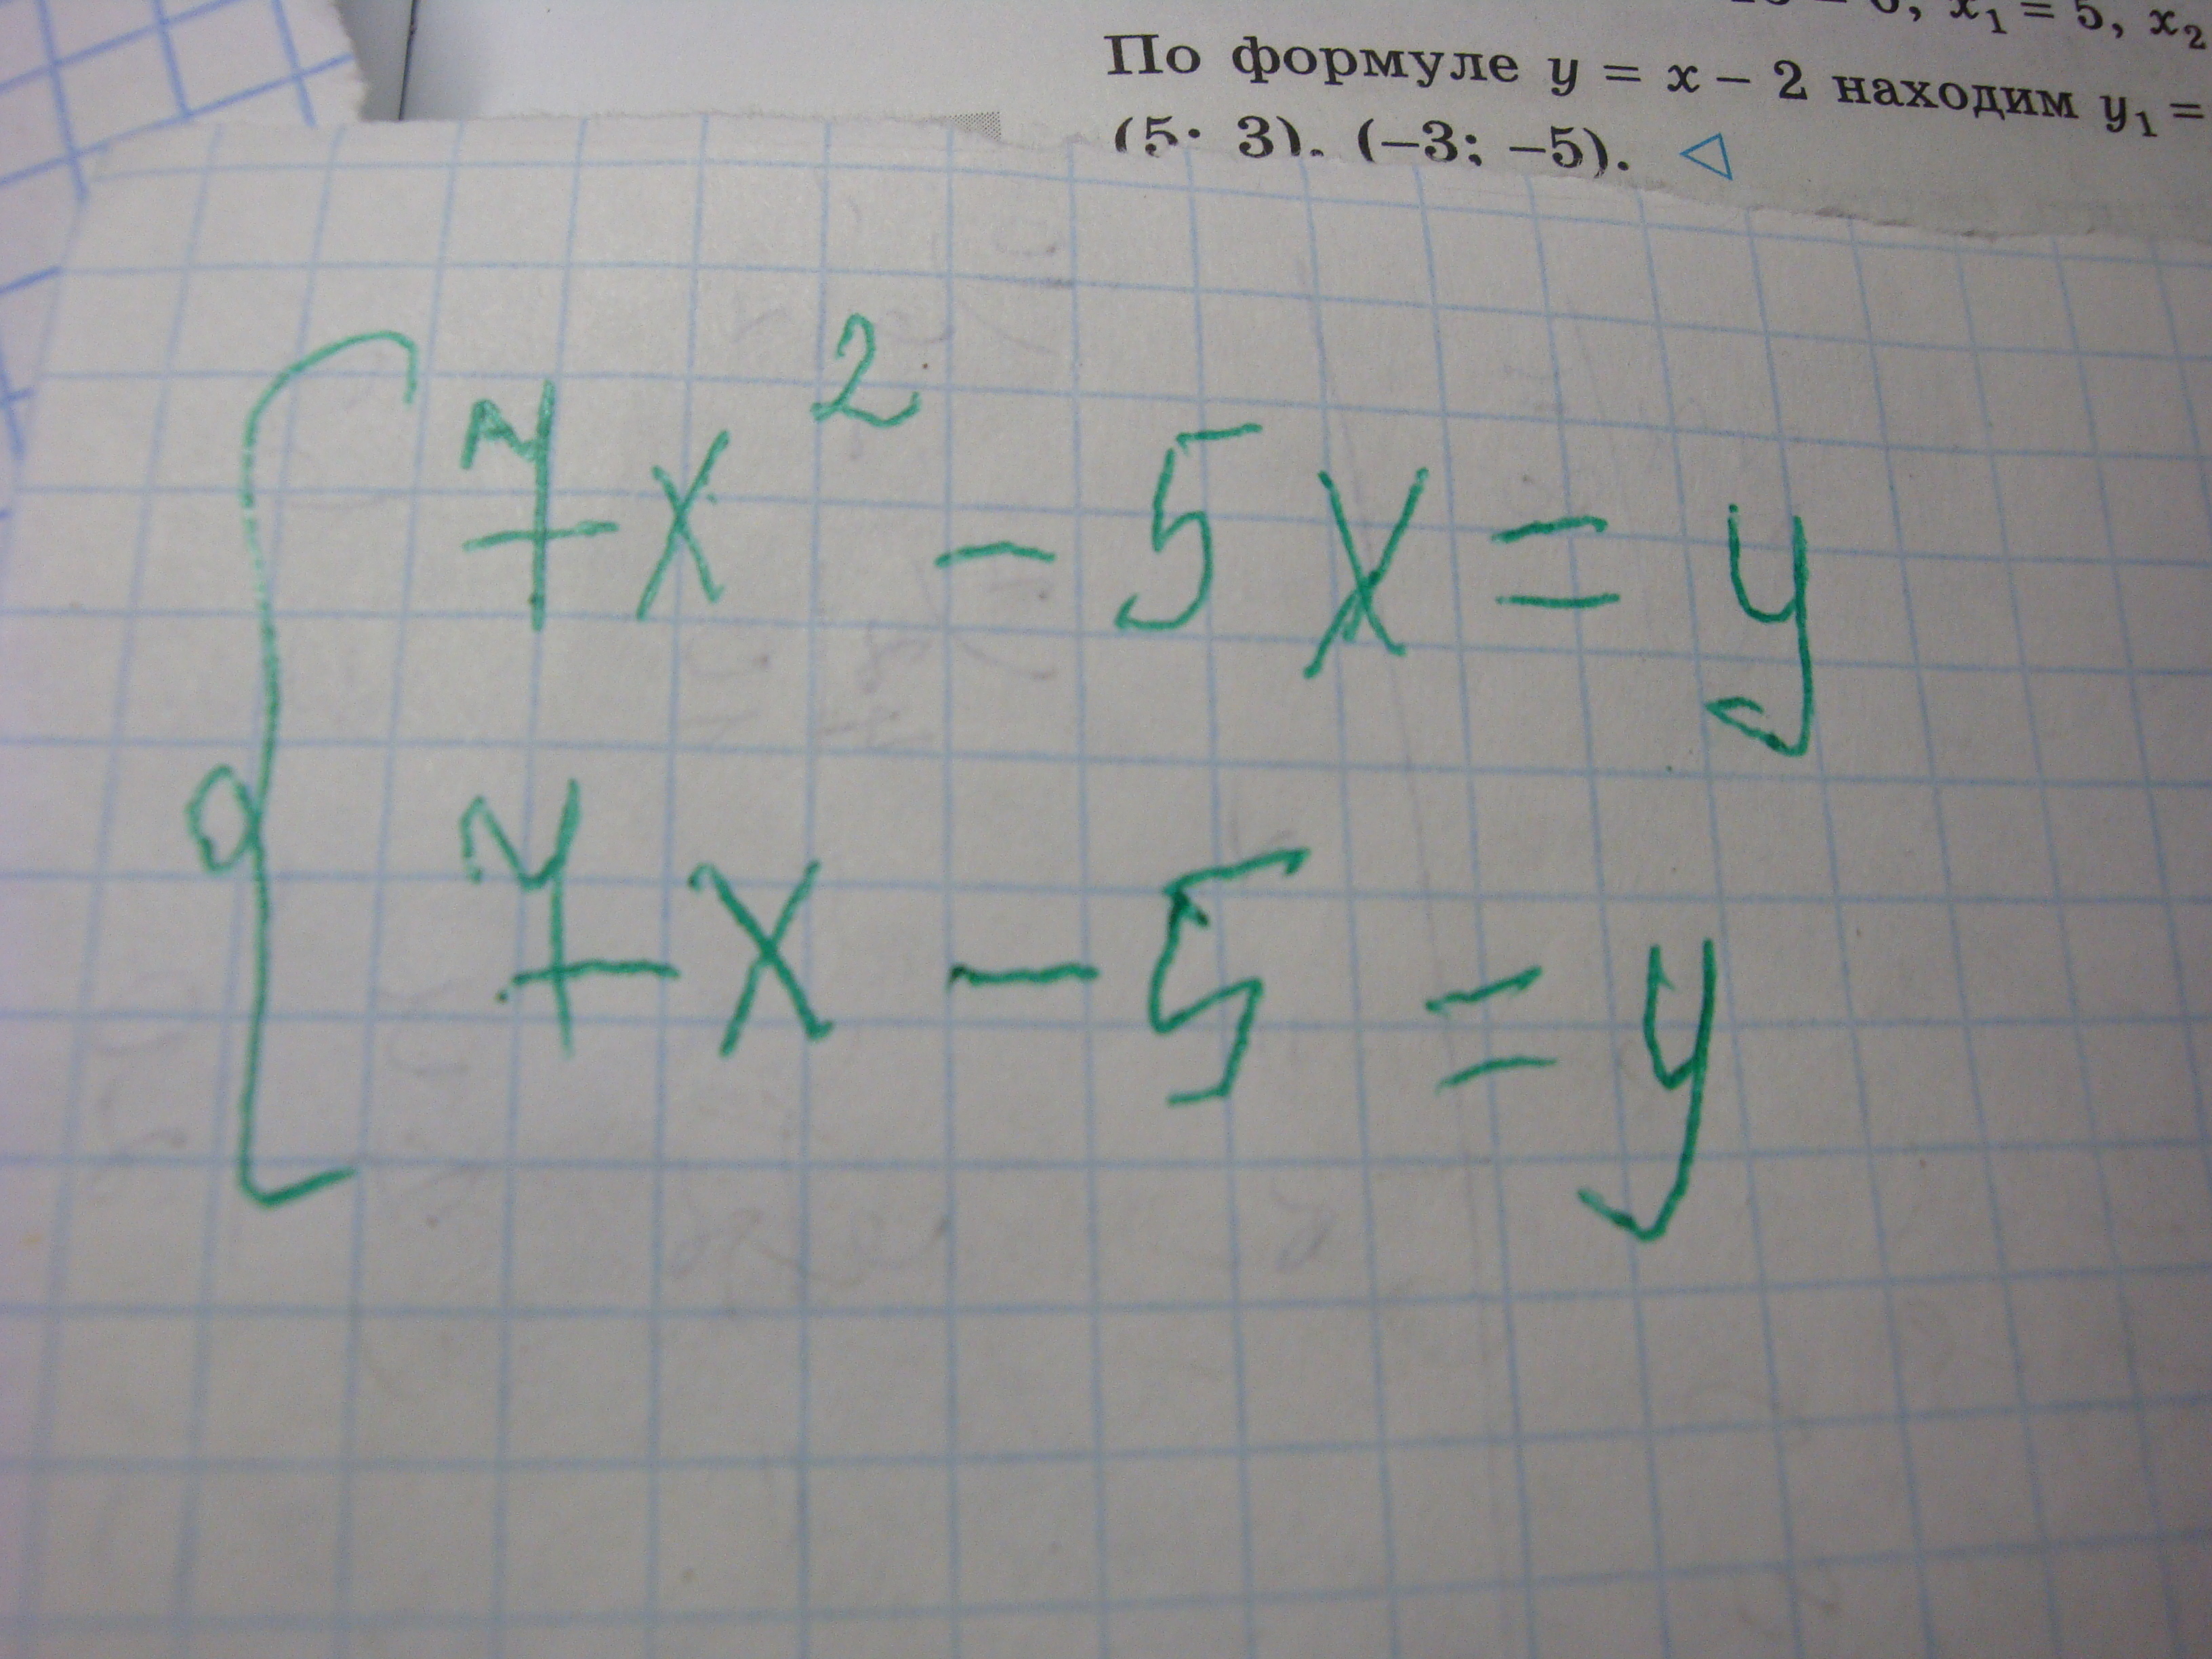 x₁ = 5, x₂
По формуле y = x − 2 находим y₁ =
(5; 3), (−3; −5). ◁
7x² − 5x = y
7x − 5 = y